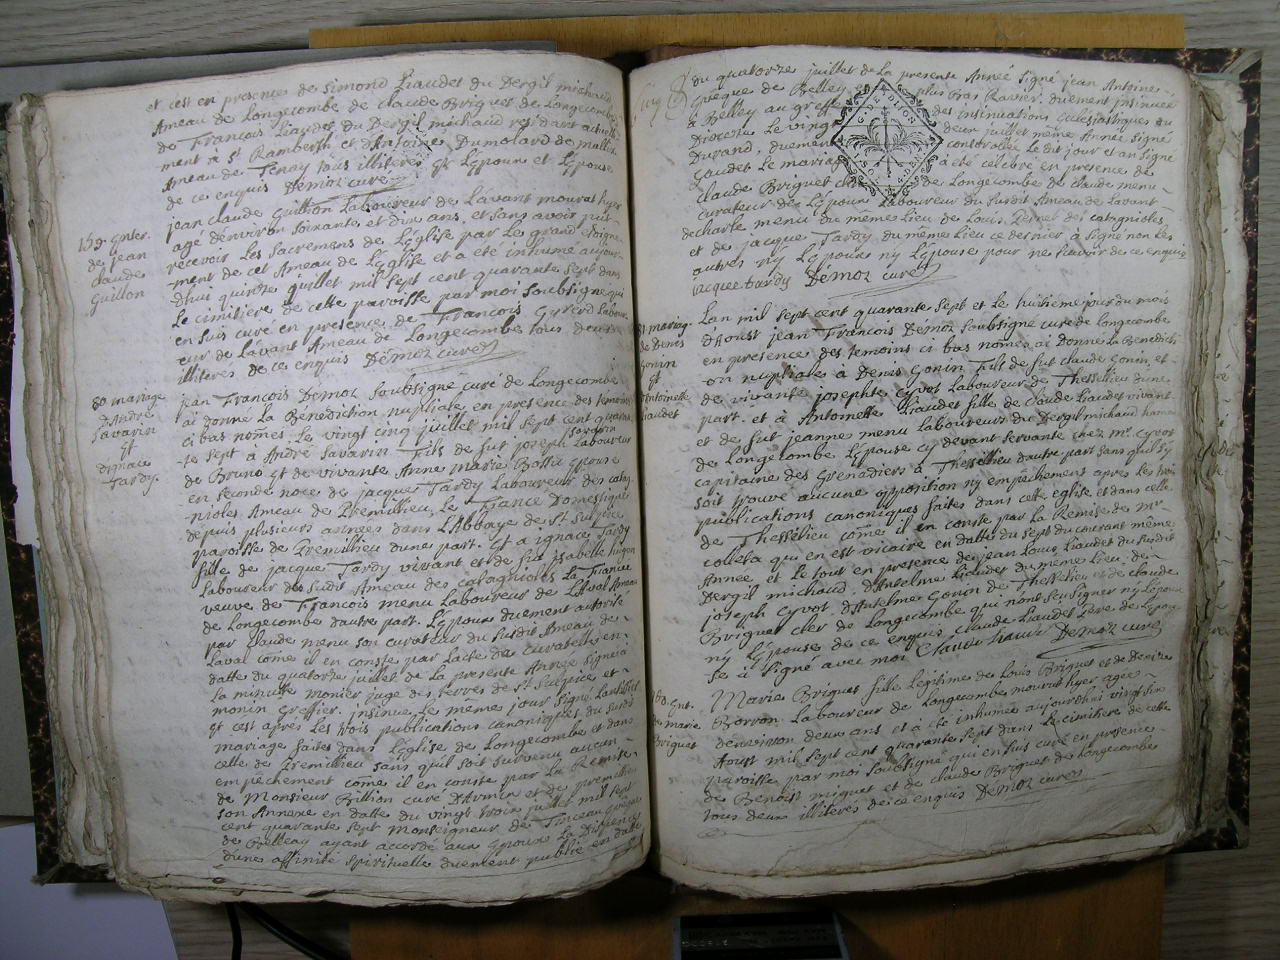 et c'est en presence de Simond Liaudet du Dergil michaud
Ameau de Longecombe de claude Briguet de Longecombe
de François Liaudet du Dergil michaud residant actuelle
ment à St Rambert et d'Antoine Dumolard de
Ameau de Tenay tous illiteres Lepoux et Lepouse
de ce enquis Demoz curé
153 Enter.
de jean
claude
Guillon
jean claude Guillon Laboureur de Lavant mourut hyer
agé denviron soixante et dix ans, et sans avoir put
recevoir les Sacremens de L'Eglise par le grand eloigne
ment de cet Ameau de L'Eglise et a été inhumé aujour
dhui quinze juillet mil sept cent quarante sept dans
Le cimitiere de cette paroisse par moi soubsigné qui
en suis curé en presence de François Labour
eur de Lavant Ameau de Longecombe tous deux
illiteres de ce enquis Demoz curé
80 mariage
D'André
Savarin
Et
d'ignace
Tardy.
jean François Demoz soubsigné curé de Longecombe
ai donné La Benediction nuptiale en presence des temoins
ci bas només Le vingt cinq juillet mil sept cent quaran
te sept à André Savarin Fils de fut joseph Savarin Laboureur
de Bruno Et de vivante Anne Marie epouse
en seconde noce de jacque Tardy Laboureur des catag
nioles Ameau de Premilieu, Le France Domestique
depuis plusieurs années dans L'Abbaye de St Sulpice
paroisse de Premillieu dune part. Et a ignace Tardy
fille de jacque Tardy vivant et de fut isabelle hugon
Laboureur du Sudit Ameau des catagnioles La France
veuve de François menu Laboureur de Laval Ameau
de Longecombe dautre part. Lepoux duement autorité
par claude menu son curateur du susdit Ameau de
Laval come il en conste par Lacte de curatelle en
datte du quatorze juillet de La presente Année signé à
La minutte monier juge des terres de St Sulpice et
monin Greffier. insinué Le memes jour signé
Et cest apres Les trois publications canoniques du susdit
mariage faites dans L'Eglise de Longecombe et dans
celle de Premillieu sans quil soit survenu aucun
empêchement come il en conste par La Remise
de Monsieur Billion curé d'Armix et de premillieu
son Annexe en datte du vingt trois juillet mil sept
cent quarante sept Monseigneur de Tinceau Eveque
de Belleay ayant accordé aux Epoux La Dispence
dune affinité spirituelle duement publié en datte
du quatorze juillet de La presente Année signé jean Antoine
Eveque de Belley plus bas Ravier. duement insinuée
à Belley au greffe des insinuations Eclesiastiques du
Diocese Le vingt deux juillet même Année signé
Durand, duement controllée Le dit jour et an signé
Gaudet Le mariage à été célébré en presence de
claude Briguet de Longecombe de claude menu
curateur de Lepoux Laboureur du Susdit Ameau de Lavant
de charle menu du même Lieu de Louis des catagnioles
et de jacque Tardy du même Lieu ce dernier à signé non Les
autres ny Lepoux ny Lepouse pour ne scavoir de ce enquis
jacque tardy Demoz curé
G. DE DIJON
81 mariag.
de Denis
Gonin
Et
d'Antoinette
Liaudet
Lan mil sept cent quarante sept et Le huitieme jour du mois
d'Aoust jean François Demoz soubsigné curé de Longecombe
en presence des temoins ci bas només ai donné La Benedicti
on nuptiale à Denis Gonin Fils de fut claude Gonin et
de vivante josephte cyvot Laboureur de Thessillieu dune
part. et à Antoinette Liaudet fille de claude Liaudet vivant
et de fut jeanne menu Laboureurs du Dergil michaud hameau
de Longecombe Lepouse cy devant servante chez mr. cyvot
capitaine des Grenadiers à Thessillieu dautre part sans quil sy
soit trouvé aucune opposition ny empêchement apres Les trois
publications canoniques faites dans cette eglise et dans celle
de Thessillieu come il en conste par La Remise de mr.
colleta qui en est vicaire en datte du sept du courant même
Année et Le tout en presence de jean Louis Liaudet du susdit
Dergil michaud, d'Antelme Liaudet du meme Lieu, de
joseph cyvot d'Antelme Gonin de Thessilieu et de claude
Briguet clerc de Longecombe qui nont seu signer ny Lepoux
ny Lepouse de ce enquis claude Liaudet Pere de Lepouse
se à signé avec moi Demoz curé
160. Ent.
de marie
Briguet
Marie Briguet fille Legitime de Louis Briguet et de denize
Borron Laboureur de Longecombe mourut hyer agée
denviron deux ans et à été inhumée aujourdhui vingt
Aoust mil sept cent quarante sept dans Le cimitiere de cette
paroisse par moi soubsigné qui en suis curé en presence
de Benoist miguet et de claude Briguet de Longecombe
tous deux illiteres de ce enquis Demoz curé